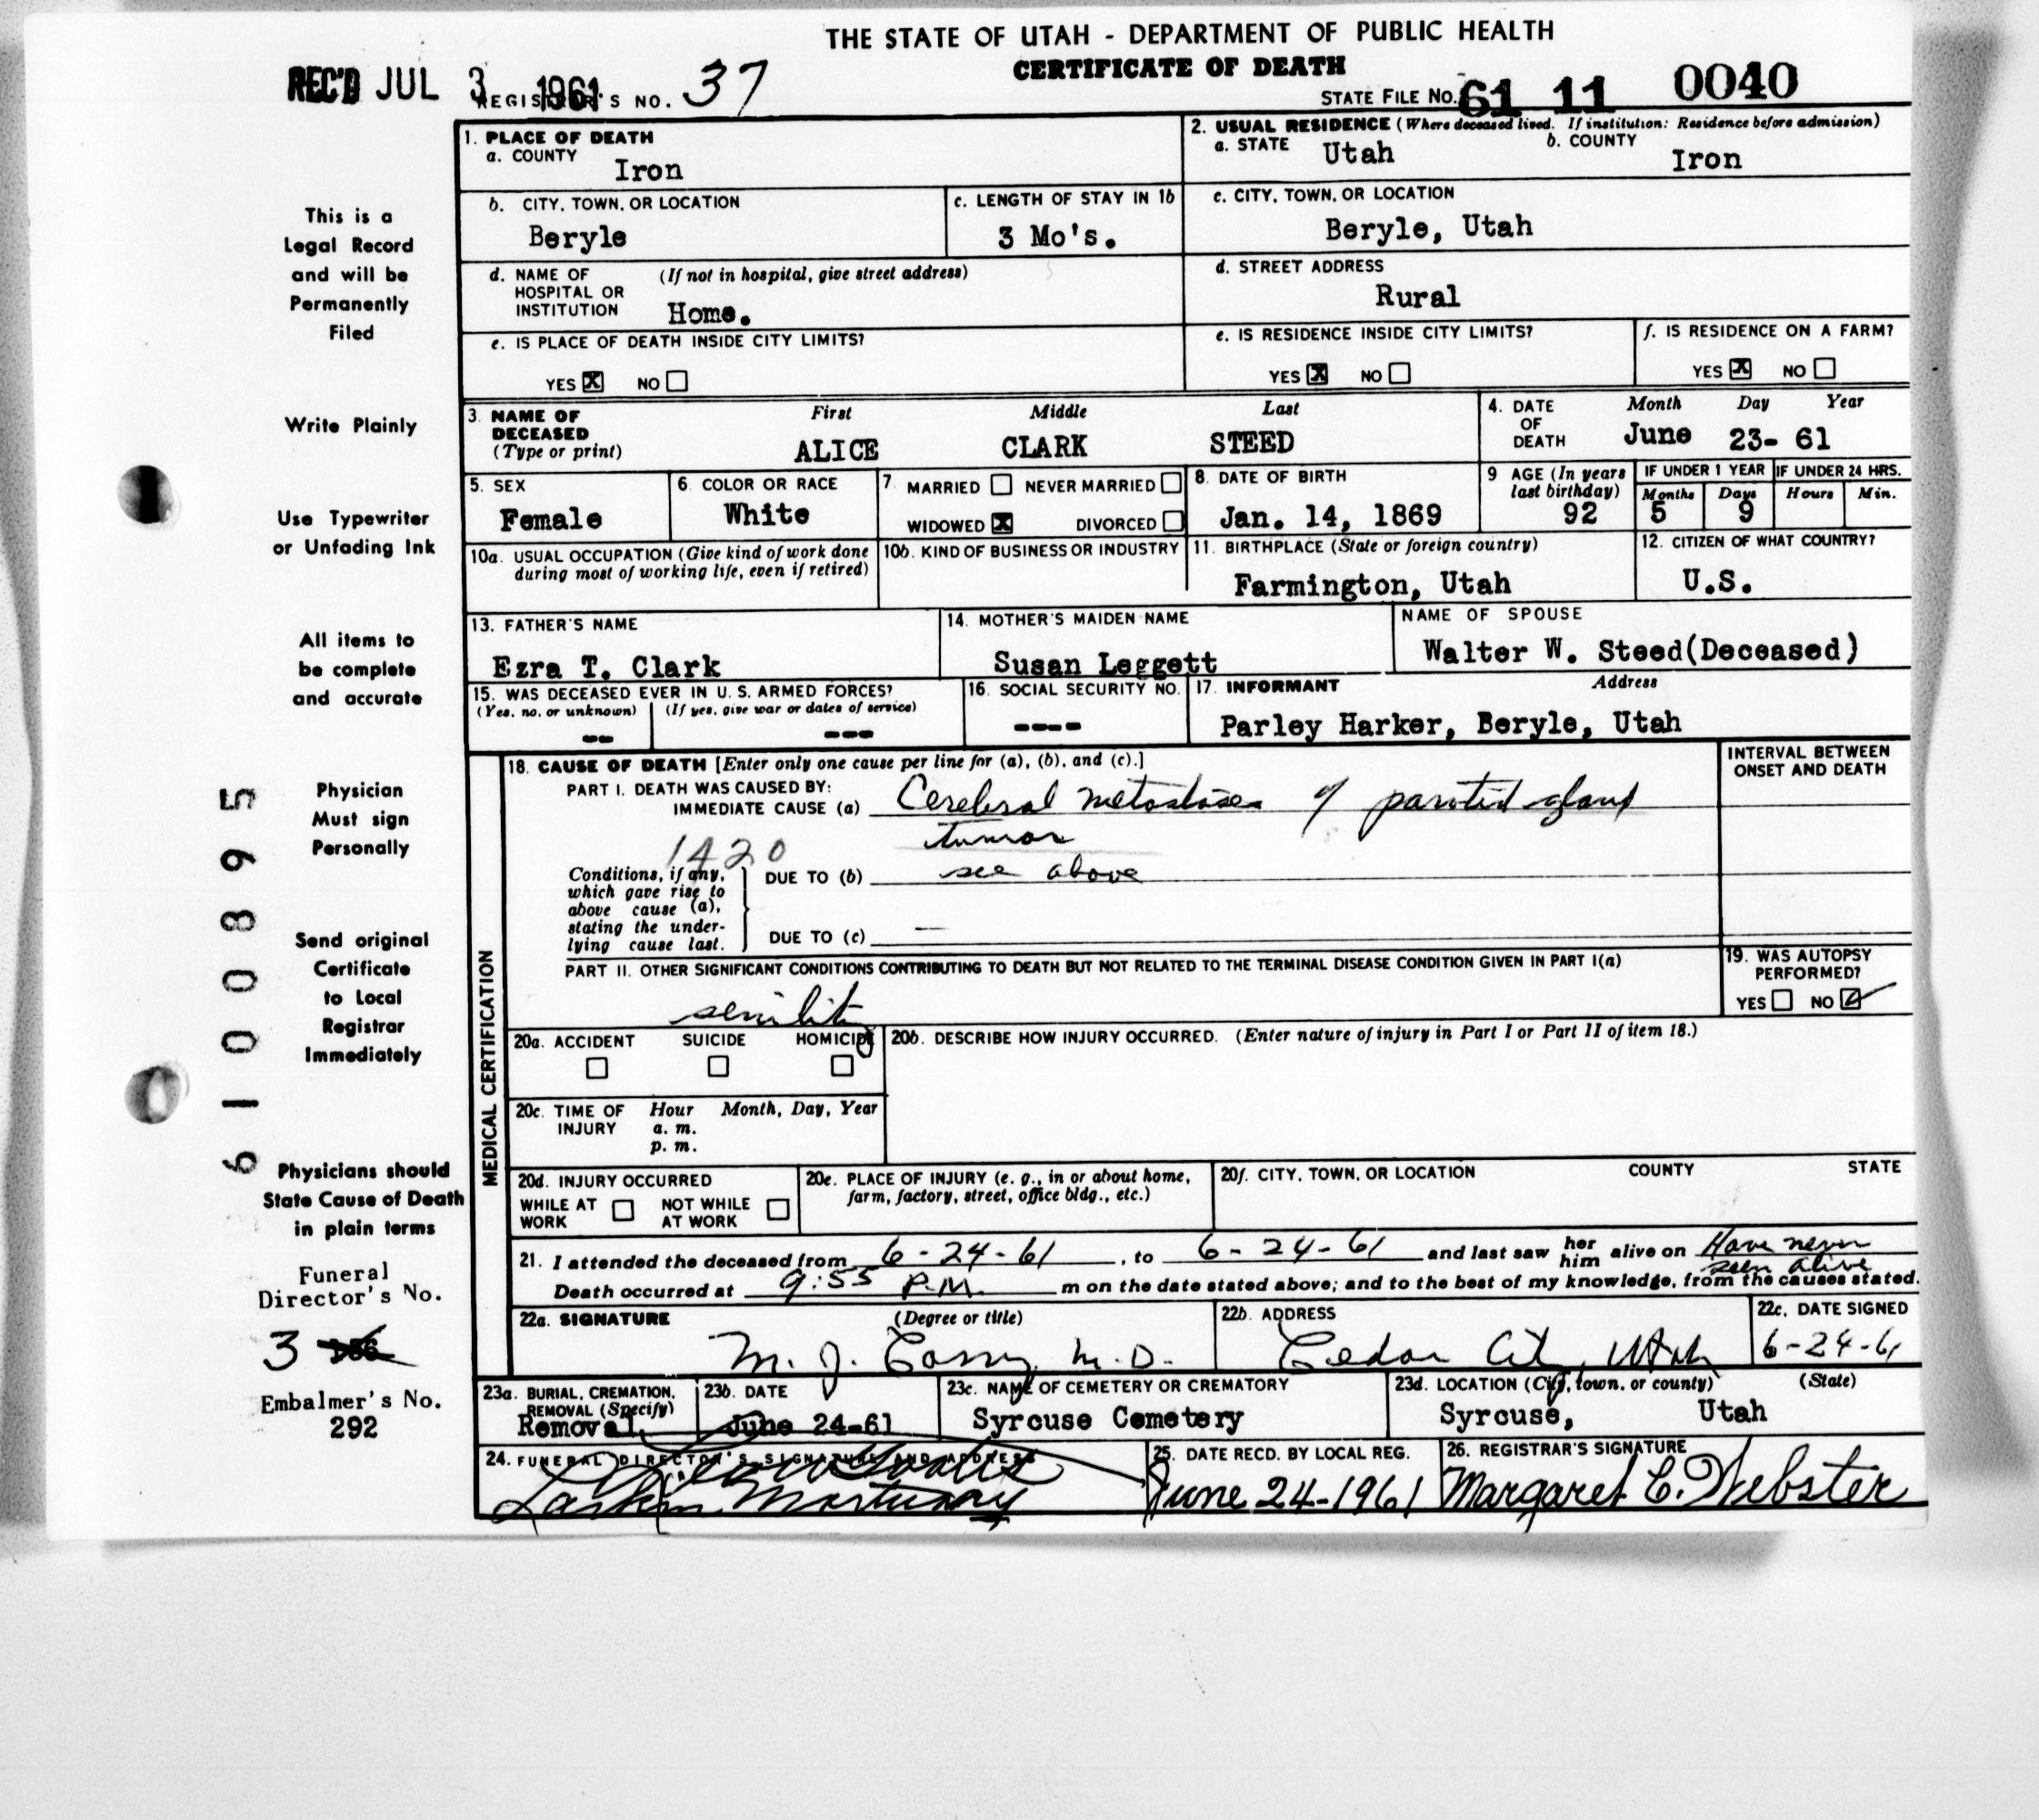 THE STATE OF UTAH - DEPARTMENT OF PUBLIC HEALTH
CERTIFICATE OF DEATH
REC'D JUL 3 1961 REGISTRAR'S NO. 37
STATE FILE NO. 61 11 0040
This is a
Legal Record
and will be
Permanently
Filed
Write Plainly
Use Typewriter
or Unfading Ink
All items to
be complete
and accurate
Physician
Must sign
Personally
Send original
Certificate
to Local
Registrar
Immediately
Physicians should
State Cause of Death
in plain terms
Funeral
Director's No.
3
Embalmer's No.
292
6100895
1. PLACE OF DEATH
a. COUNTY
Iron
2. USUAL RESIDENCE (Where deceased lived. If institution: Residence before admission)
a. STATE Utah b. COUNTY Iron
b. CITY, TOWN, OR LOCATION
Beryle
c. LENGTH OF STAY IN 1b
3 Mo's.
c. CITY, TOWN, OR LOCATION
Beryle, Utah
d. NAME OF (If not in hospital, give street address)
HOSPITAL OR
INSTITUTION Home.
d. STREET ADDRESS
Rural
e. IS PLACE OF DEATH INSIDE CITY LIMITS?
YES X NO
e. IS RESIDENCE INSIDE CITY LIMITS?
YES X NO
f. IS RESIDENCE ON A FARM?
YES X NO
3. NAME OF DECEASED (Type or print)
First Middle Last
ALICE CLARK STEED
4. DATE OF DEATH
Month Day Year
June 23- 61
5. SEX
Female
6. COLOR OR RACE
White
7. MARRIED NEVER MARRIED
WIDOWED X DIVORCED
8. DATE OF BIRTH
Jan. 14, 1869
9 AGE (In years last birthday)
92
IF UNDER 1 YEAR IF UNDER 24 HRS.
Months Days Hours Min.
5 9
10a. USUAL OCCUPATION (Give kind of work done
during most of working life, even if retired)
10b. KIND OF BUSINESS OR INDUSTRY
11. BIRTHPLACE (State or foreign country)
Farmington, Utah
12. CITIZEN OF WHAT COUNTRY?
U.S.
13. FATHER'S NAME
Ezra T. Clark
14. MOTHER'S MAIDEN NAME
Susan Leggett
NAME OF SPOUSE
Walter W. Steed(Deceased)
15. WAS DECEASED EVER IN U. S. ARMED FORCES?
(Yes, no, or unknown) (If yes, give war or dates of service)
-- ---
16. SOCIAL SECURITY NO.
----
17. INFORMANT Address
Parley Harker, Beryle, Utah
MEDICAL CERTIFICATION
18. CAUSE OF DEATH [Enter only one cause per line for (a), (b), and (c).]
INTERVAL BETWEEN
ONSET AND DEATH
PART I. DEATH WAS CAUSED BY:
IMMEDIATE CAUSE (a) Cerebral metastases of parotid gland
tumor
1420
Conditions, if any,
which gave rise to
above cause (a),
stating the under-
lying cause last.
DUE TO (b) see above
DUE TO (c) —
PART II. OTHER SIGNIFICANT CONDITIONS CONTRIBUTING TO DEATH BUT NOT RELATED TO THE TERMINAL DISEASE CONDITION GIVEN IN PART I(a)
senility
19. WAS AUTOPSY
PERFORMED?
YES NO ✓
20a. ACCIDENT SUICIDE HOMICIDE
20b. DESCRIBE HOW INJURY OCCURRED. (Enter nature of injury in Part I or Part II of item 18.)
20c. TIME OF INJURY Hour Month, Day, Year
a. m.
p. m.
20d. INJURY OCCURRED
WHILE AT WORK NOT WHILE AT WORK
20e. PLACE OF INJURY (e. g., in or about home,
farm, factory, street, office bldg., etc.)
20f. CITY, TOWN, OR LOCATION COUNTY STATE
21. I attended the deceased from 6-24-61, to 6-24-61 and last saw her him alive on Have never seen alive
Death occurred at 9:55 P.M. m on the date stated above; and to the best of my knowledge, from the causes stated.
22a. SIGNATURE (Degree or title)
M. J. M.D.
22b. ADDRESS
Cedar City, Utah
22c. DATE SIGNED
6-24-61
23a. BURIAL, CREMATION,
REMOVAL (Specify)
Removal
23b. DATE
June 24-61
23c. NAME OF CEMETERY OR CREMATORY
Syrcuse Cemetery
23d. LOCATION (City, town, or county) (State)
Syrcuse, Utah
24. FUNERAL DIRECTOR'S SIGNATURE AND ADDRESS
Larkin Mortuary
25. DATE RECD. BY LOCAL REG.
June 24-1961
26. REGISTRAR'S SIGNATURE
Margaret C. Webster